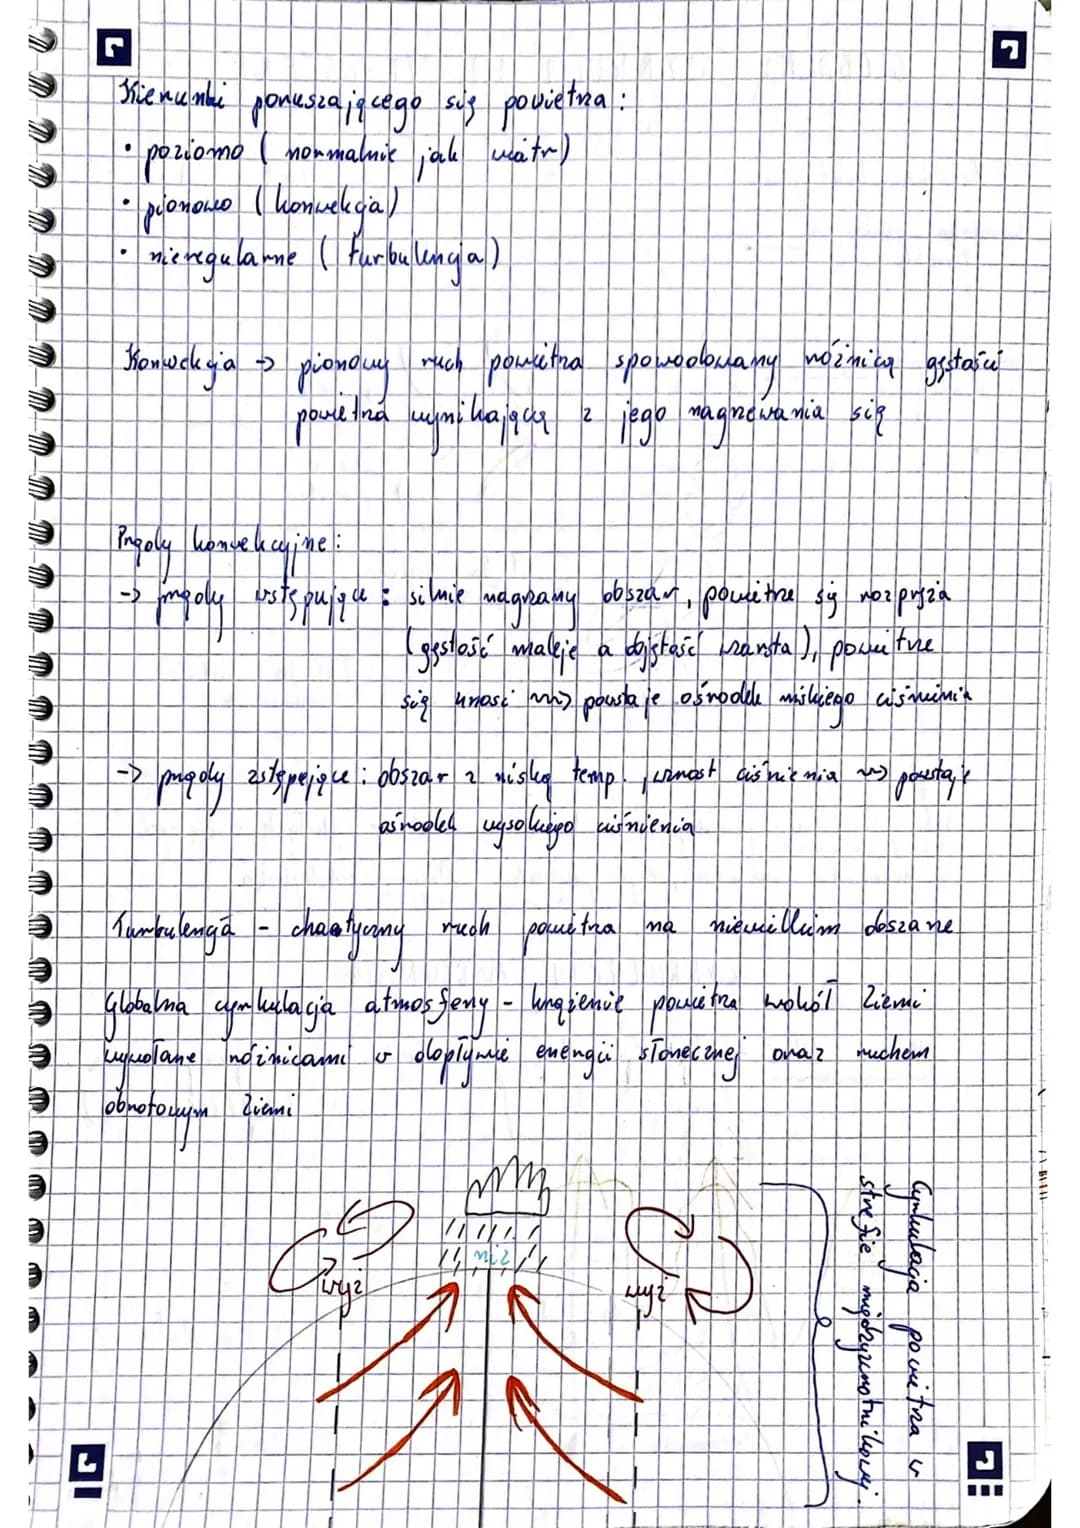 Kierunki poruszającego się powietrza :
• poziomo ( normalnie jak wiatr)
• pionowo ( konwekcja)
• nieregularne ( turbulencja)
Konwekcja → pionowy ruch powietrza spowodowany różnicą gęstości
powietrza wynikającą z jego nagrzewania się
Prądy konwekcyjne :
→ prądy wstępujące : silnie nagrzany obszar, powietrze się rozpręża
(gęstość maleje a objętość wzrasta), powietrze
się unosi ⇝ powstaje ośrodek niskiego ciśnienia
→ prądy zstępejące : obszar z niską temp. , wzrost ciśnienia ⇝ powstaje
ośrodek wysokiego ciśnienia
Turbulencja - chaotyczny ruch powietrza na niewielkim obszarze
Globalna cyrkulacja atmosfery - krążenie powietrza wokół Ziemi
wywołane różnicami w dopływie energii słonecznej oraz ruchem
obrotowym Ziemi
niż
wyż
wyż
Cyrkulacja powietrza w
strefie międzyzwrotnikowej.